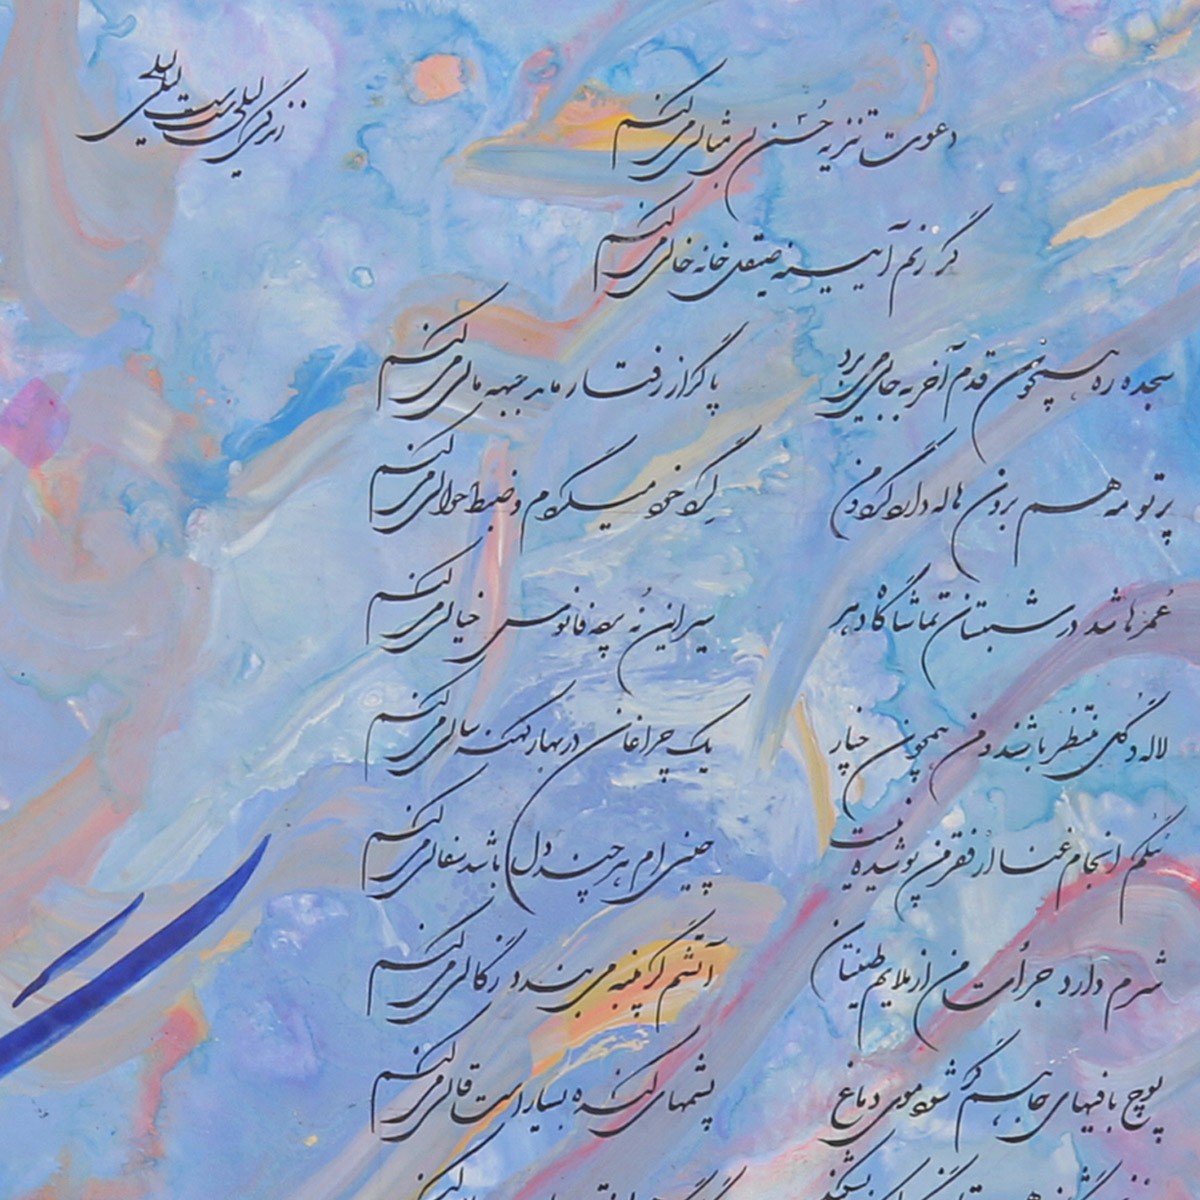 دعوت تنزیه حُسن بی مثالی می کنم
گر زنم آیینه صیقل خانه خالی می کنم
سجده ره همچون قدم آخر به جایی می برد
پا گر از رفتار ماند جبهه مالی می کنم
پرتو مه هم برون هاله دارد گرد و من
گرد خود می گردم و ضبط حوالی می کنم
عُمرها شد در شبستان تماشاگاه دهر
سیر این نُه بچه فانوس خیالی می کنم
لاله و گل منتظر باشند و من همچون چنار
یک چراغان در بهار کهنه سالی می کنم
انجام غنا از فقر من پوشیده نیست
چینی ام هر چند دل باشد سفالی می کنم
شرم دارد جرأت من از ملایم طینتان
آتشم گر پنبه می بندد زگالی می کنم
پوچ بافیهای جاهم گر شود موی دماغ
پشمهای کنده بسیار است قالی می کنم